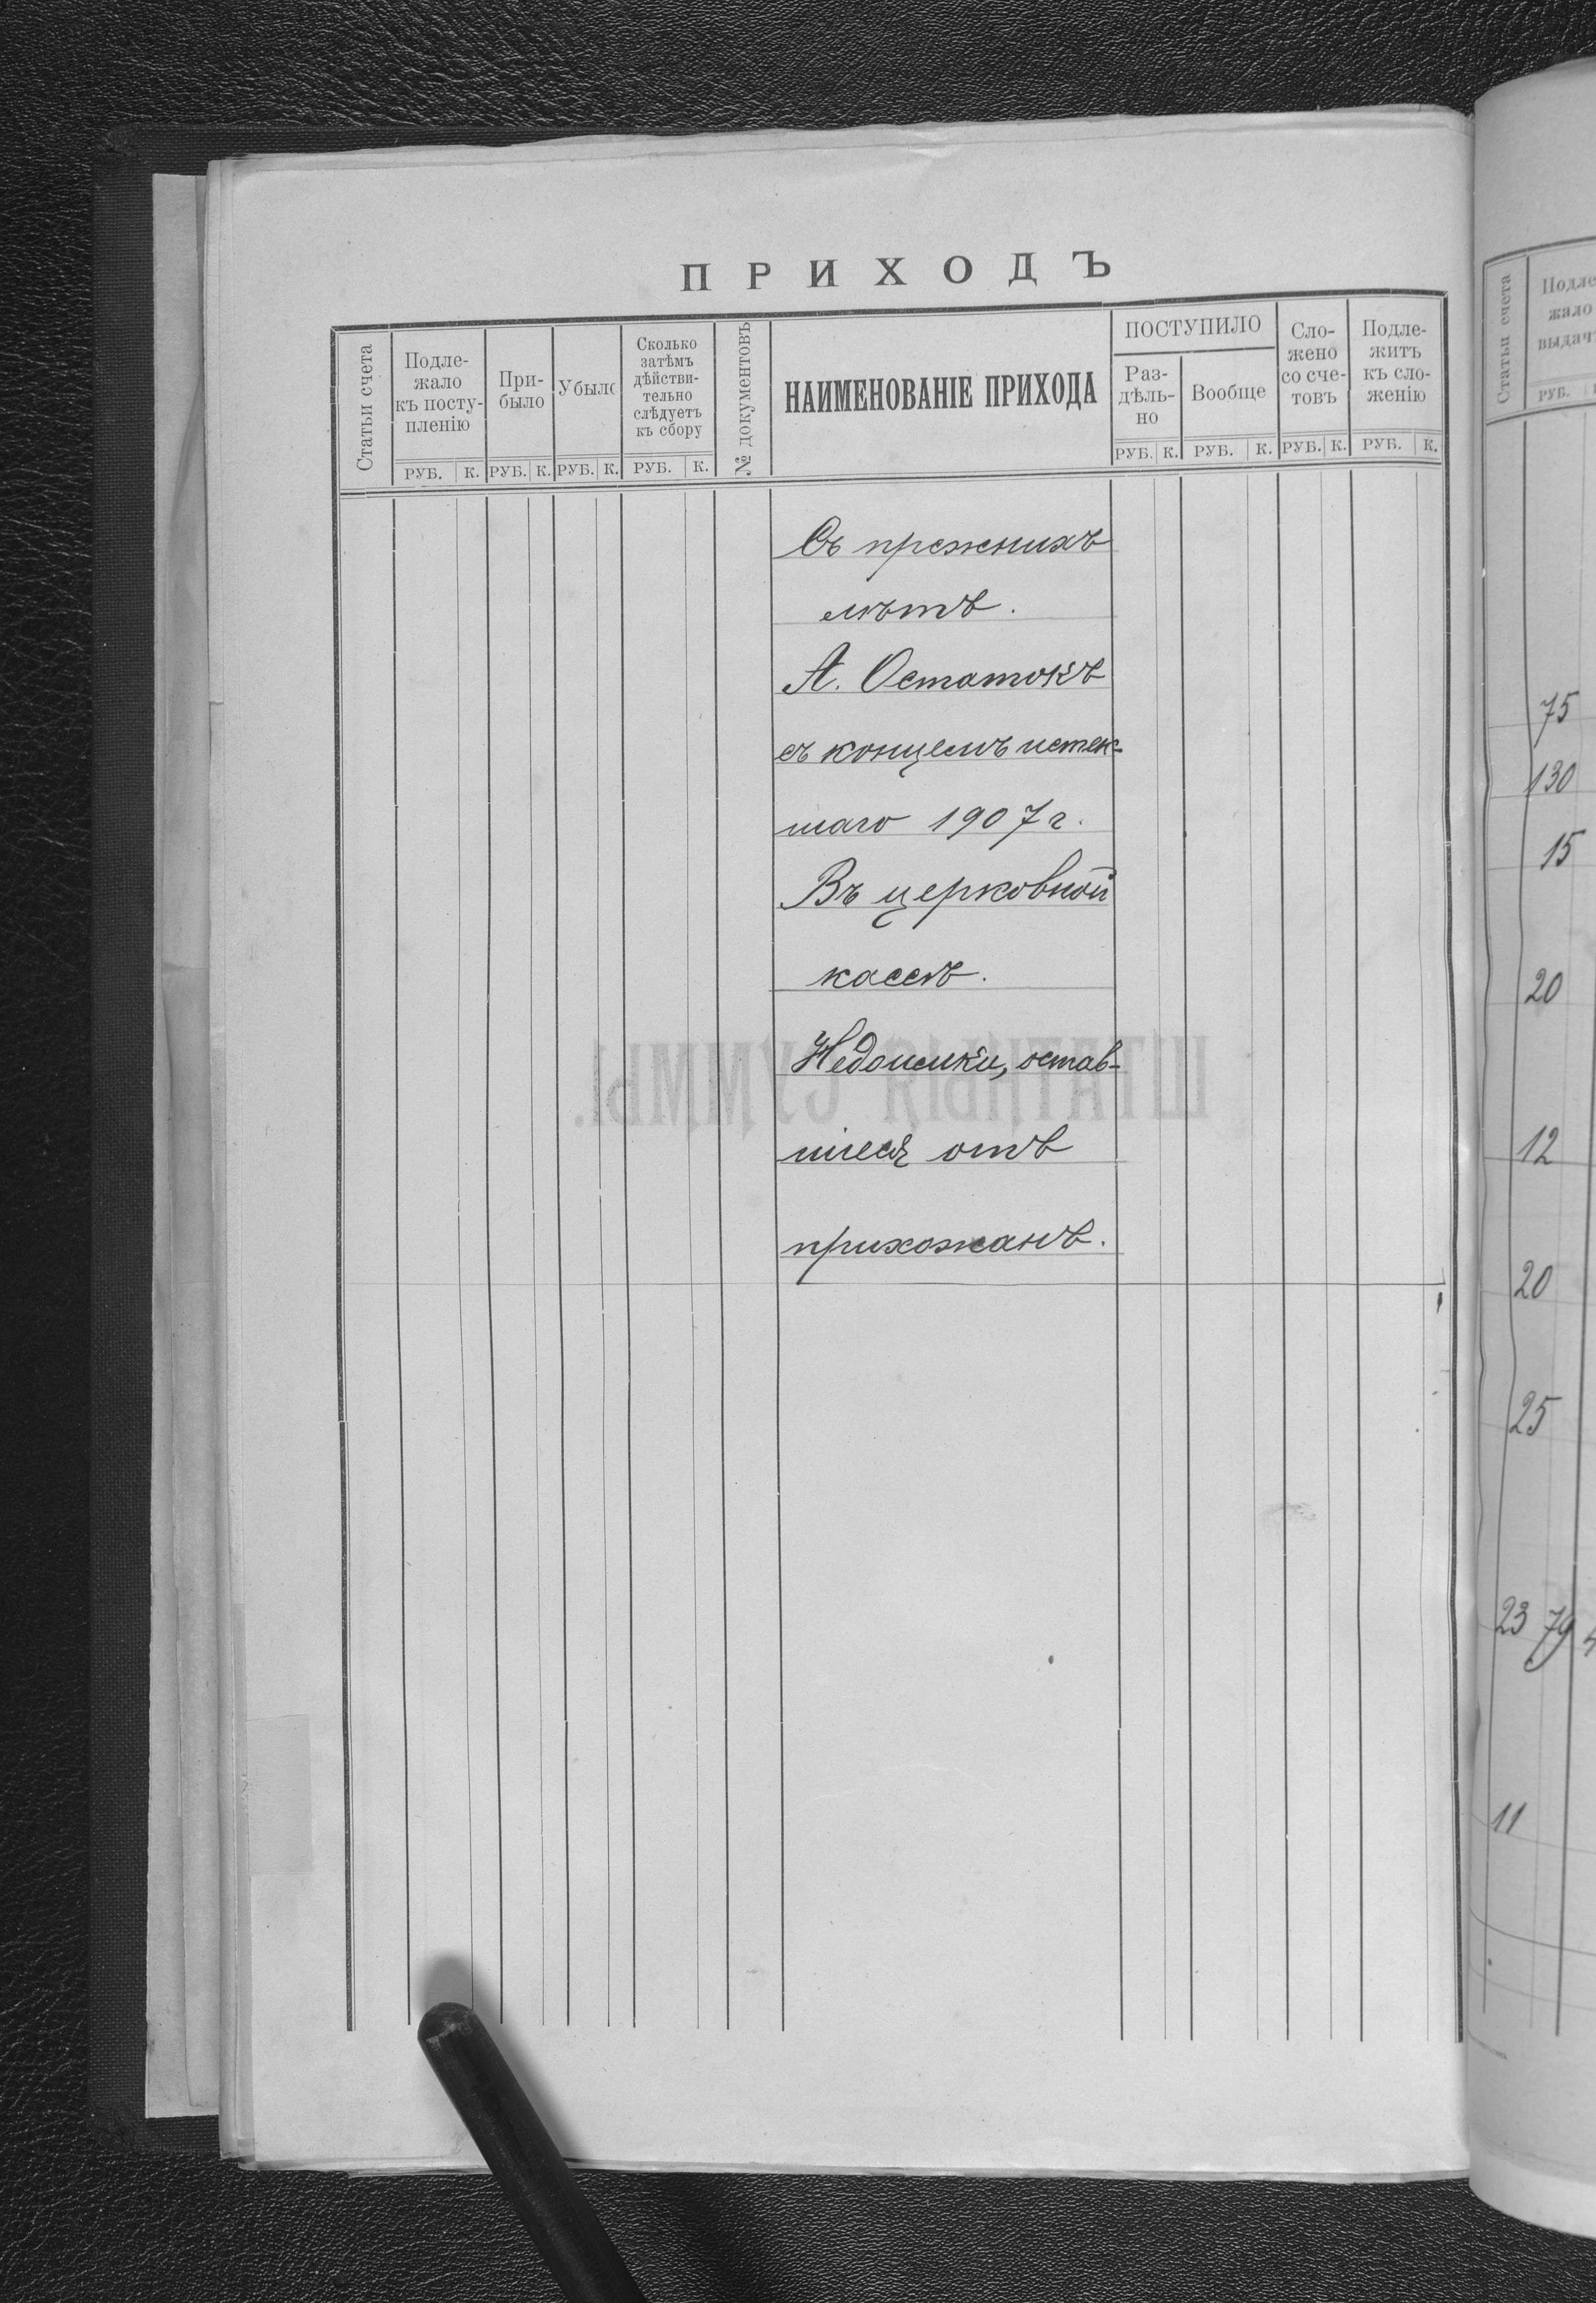 ПРИХОДЪ
Статьи счета
Подле-
жало
къ посту-
пленію
При-
было
Убыло
Сколько
затѣмъ
дѣйстви-
тельно
слѣдуетъ
къ сбору
№ документовъ
НАИМЕНОВАНІЕ ПРИХОДА
ПОСТУПИЛО
Раз-
дѣль-
но
Вообще
Сло-
жено
со сче-
товъ
Подле-
житъ
къ сло-
женію
РУБ. К. РУБ. К. РУБ. К. РУБ. К. РУБ. К. РУБ. К. РУБ. К. РУБ. К.
Съ прежнихъ
лѣтъ.
А. Остатокъ
съ концемъ истек-
шаго 1907 г.
Въ церковной
кассѣ.
Недоимки, остав-
шіеся отъ
прихожанъ.
ШТАТНЫЯ СУММЫ.
Статьи счета
Подле
жало
выдач
РУБ.
75
130
15
20
12
20
25
23 79
11